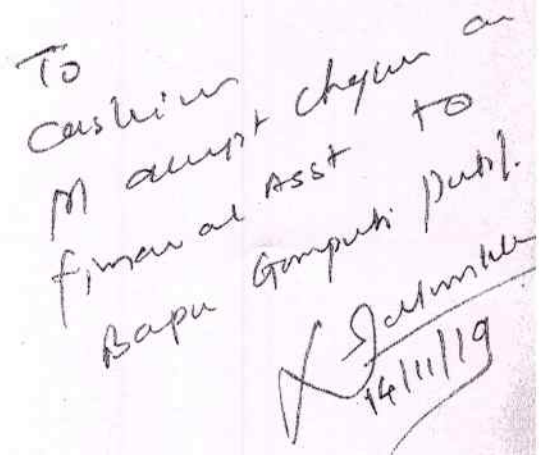 To
Cashier
accept cheque as
financial Asst to
Bapu Ganpati Patil.
14/11/19